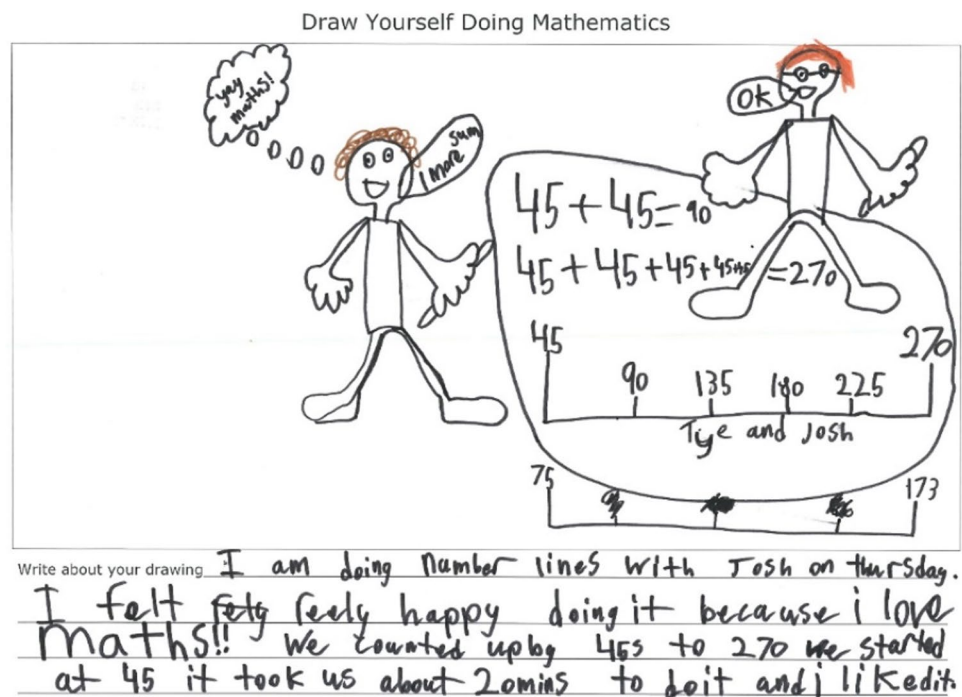 Draw Yourself Doing Mathematics
yay
maths!
1 more
sum
OK
45+45=90
45+45+45+45+45 =270
45
270
90 135 180 225
Tye and Josh
75
173
Write about your drawing I am doing number lines with Josh on thursday.
I felt reely happy doing it because i love
maths!! We counted up by 45s to 270 we started
at 45 it took us about 20mins to do it and i liked it